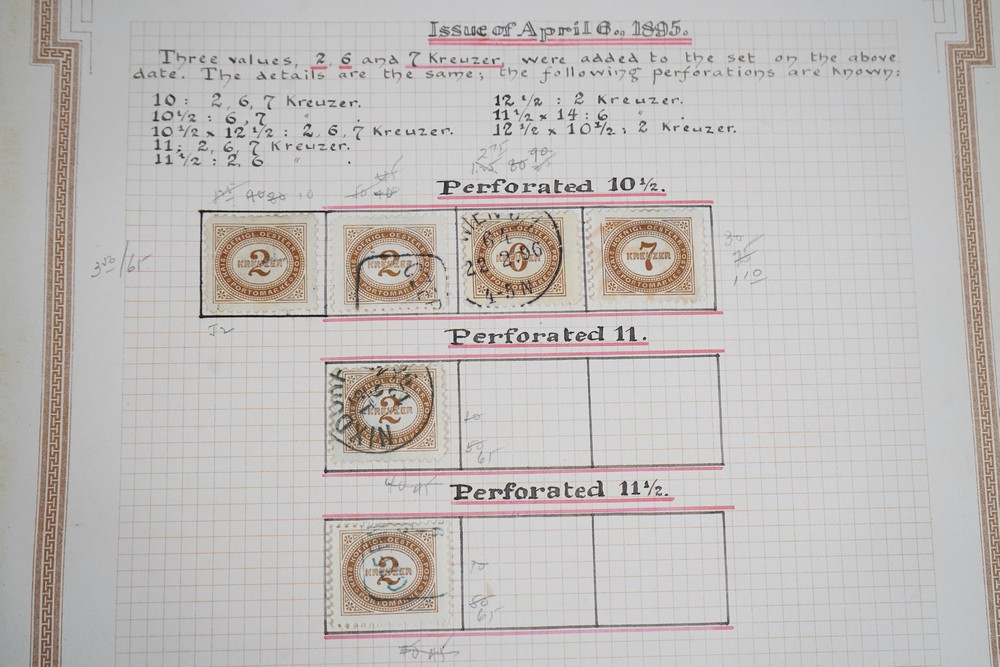 Issue of April 6., 1895.
Three values, 2, 6 and 7 Kreuzer, were added to the set on the above
date. The details are the same; the following perforations are known:
10 : 2, 6, 7 Kreuzer.
10 1/2 : 6, 7 " .
10 1/2 x 12 1/2 : 2, 6, 7 Kreuzer.
11 : 2, 6, 7 Kreuzer.
11 1/2 : 2, 6 " .
12 1/2 : 2 Kreuzer.
11 1/2 x 14 : 6 " .
12 1/2 x 10 1/2 : 2 Kreuzer.
90
Perforated 10 1/2.
2
KREUZER
2
KREUZER
6
22 2 96
7
KREUZER
Perforated 11.
2
KREUZER
65
Perforated 11 1/2.
2
KREUZER
65